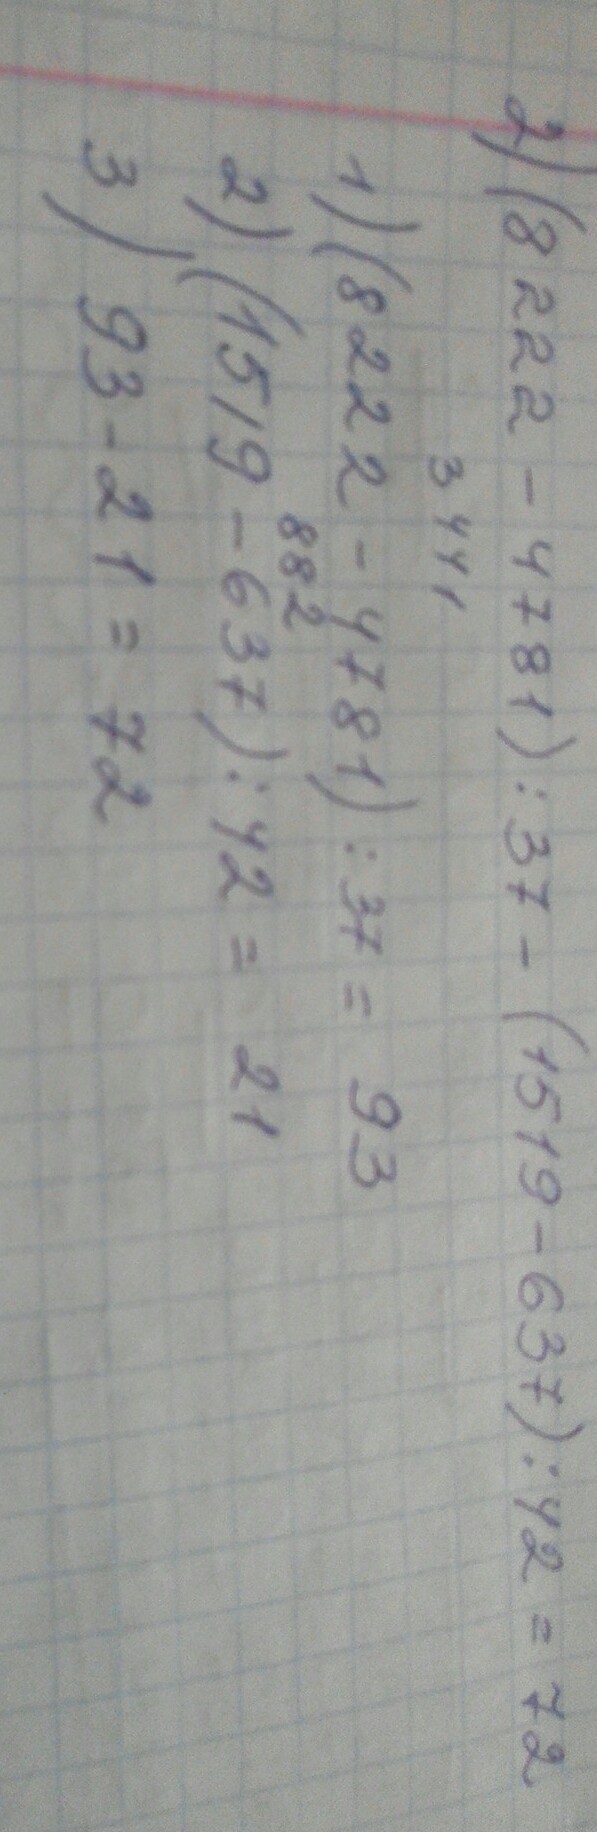 2) (8222 - 4781) : 37 - (1519 - 637) : 42 = 72
3441
1) (8222 - 4781) : 37 = 93
882
2) (1519 - 637) : 42 = 21
3) 93 - 21 = 72